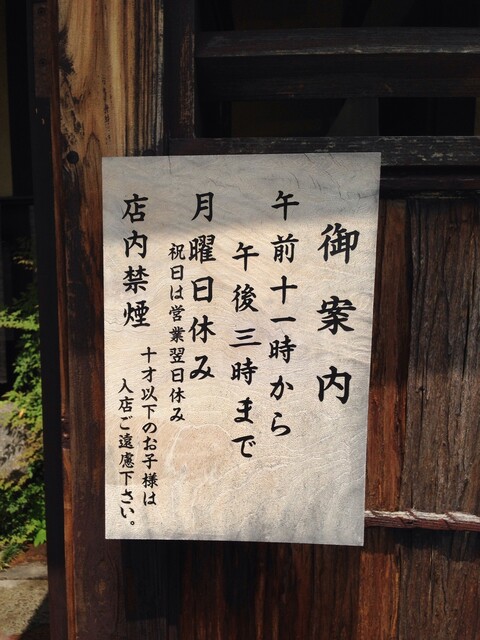 御案内
午前十一時から
午後三時まで
月曜日休み
祝日は営業翌日休み
店内禁煙
十才以下のお子様は
入店ご遠慮下さい。